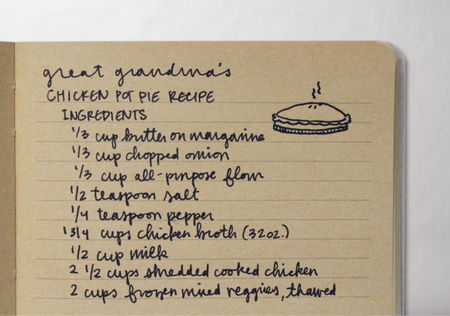 great grandma's
CHICKEN POT PIE RECIPE
INGREDIENTS
1/3 cup butter or margarine
1/3 cup chopped onion
1/3 cup all-purpose flour
1/2 teaspoon salt
1/4 teaspoon pepper
1 3/4 cups chicken broth (32oz.)
1/2 cup milk
2 1/2 cups shredded cooked chicken
2 cups frozen mixed veggies, thawed